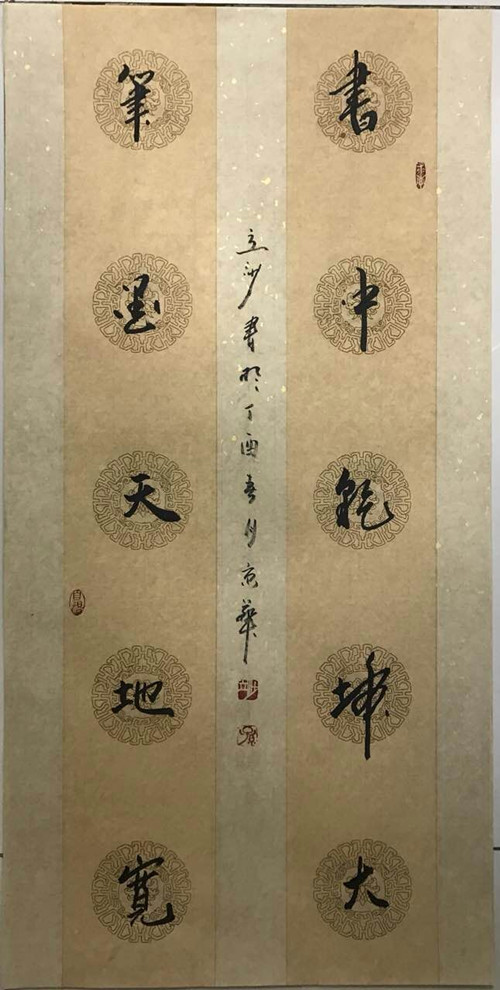 書中乾坤大
筆墨天地寬
立沙書於丁酉春月京華